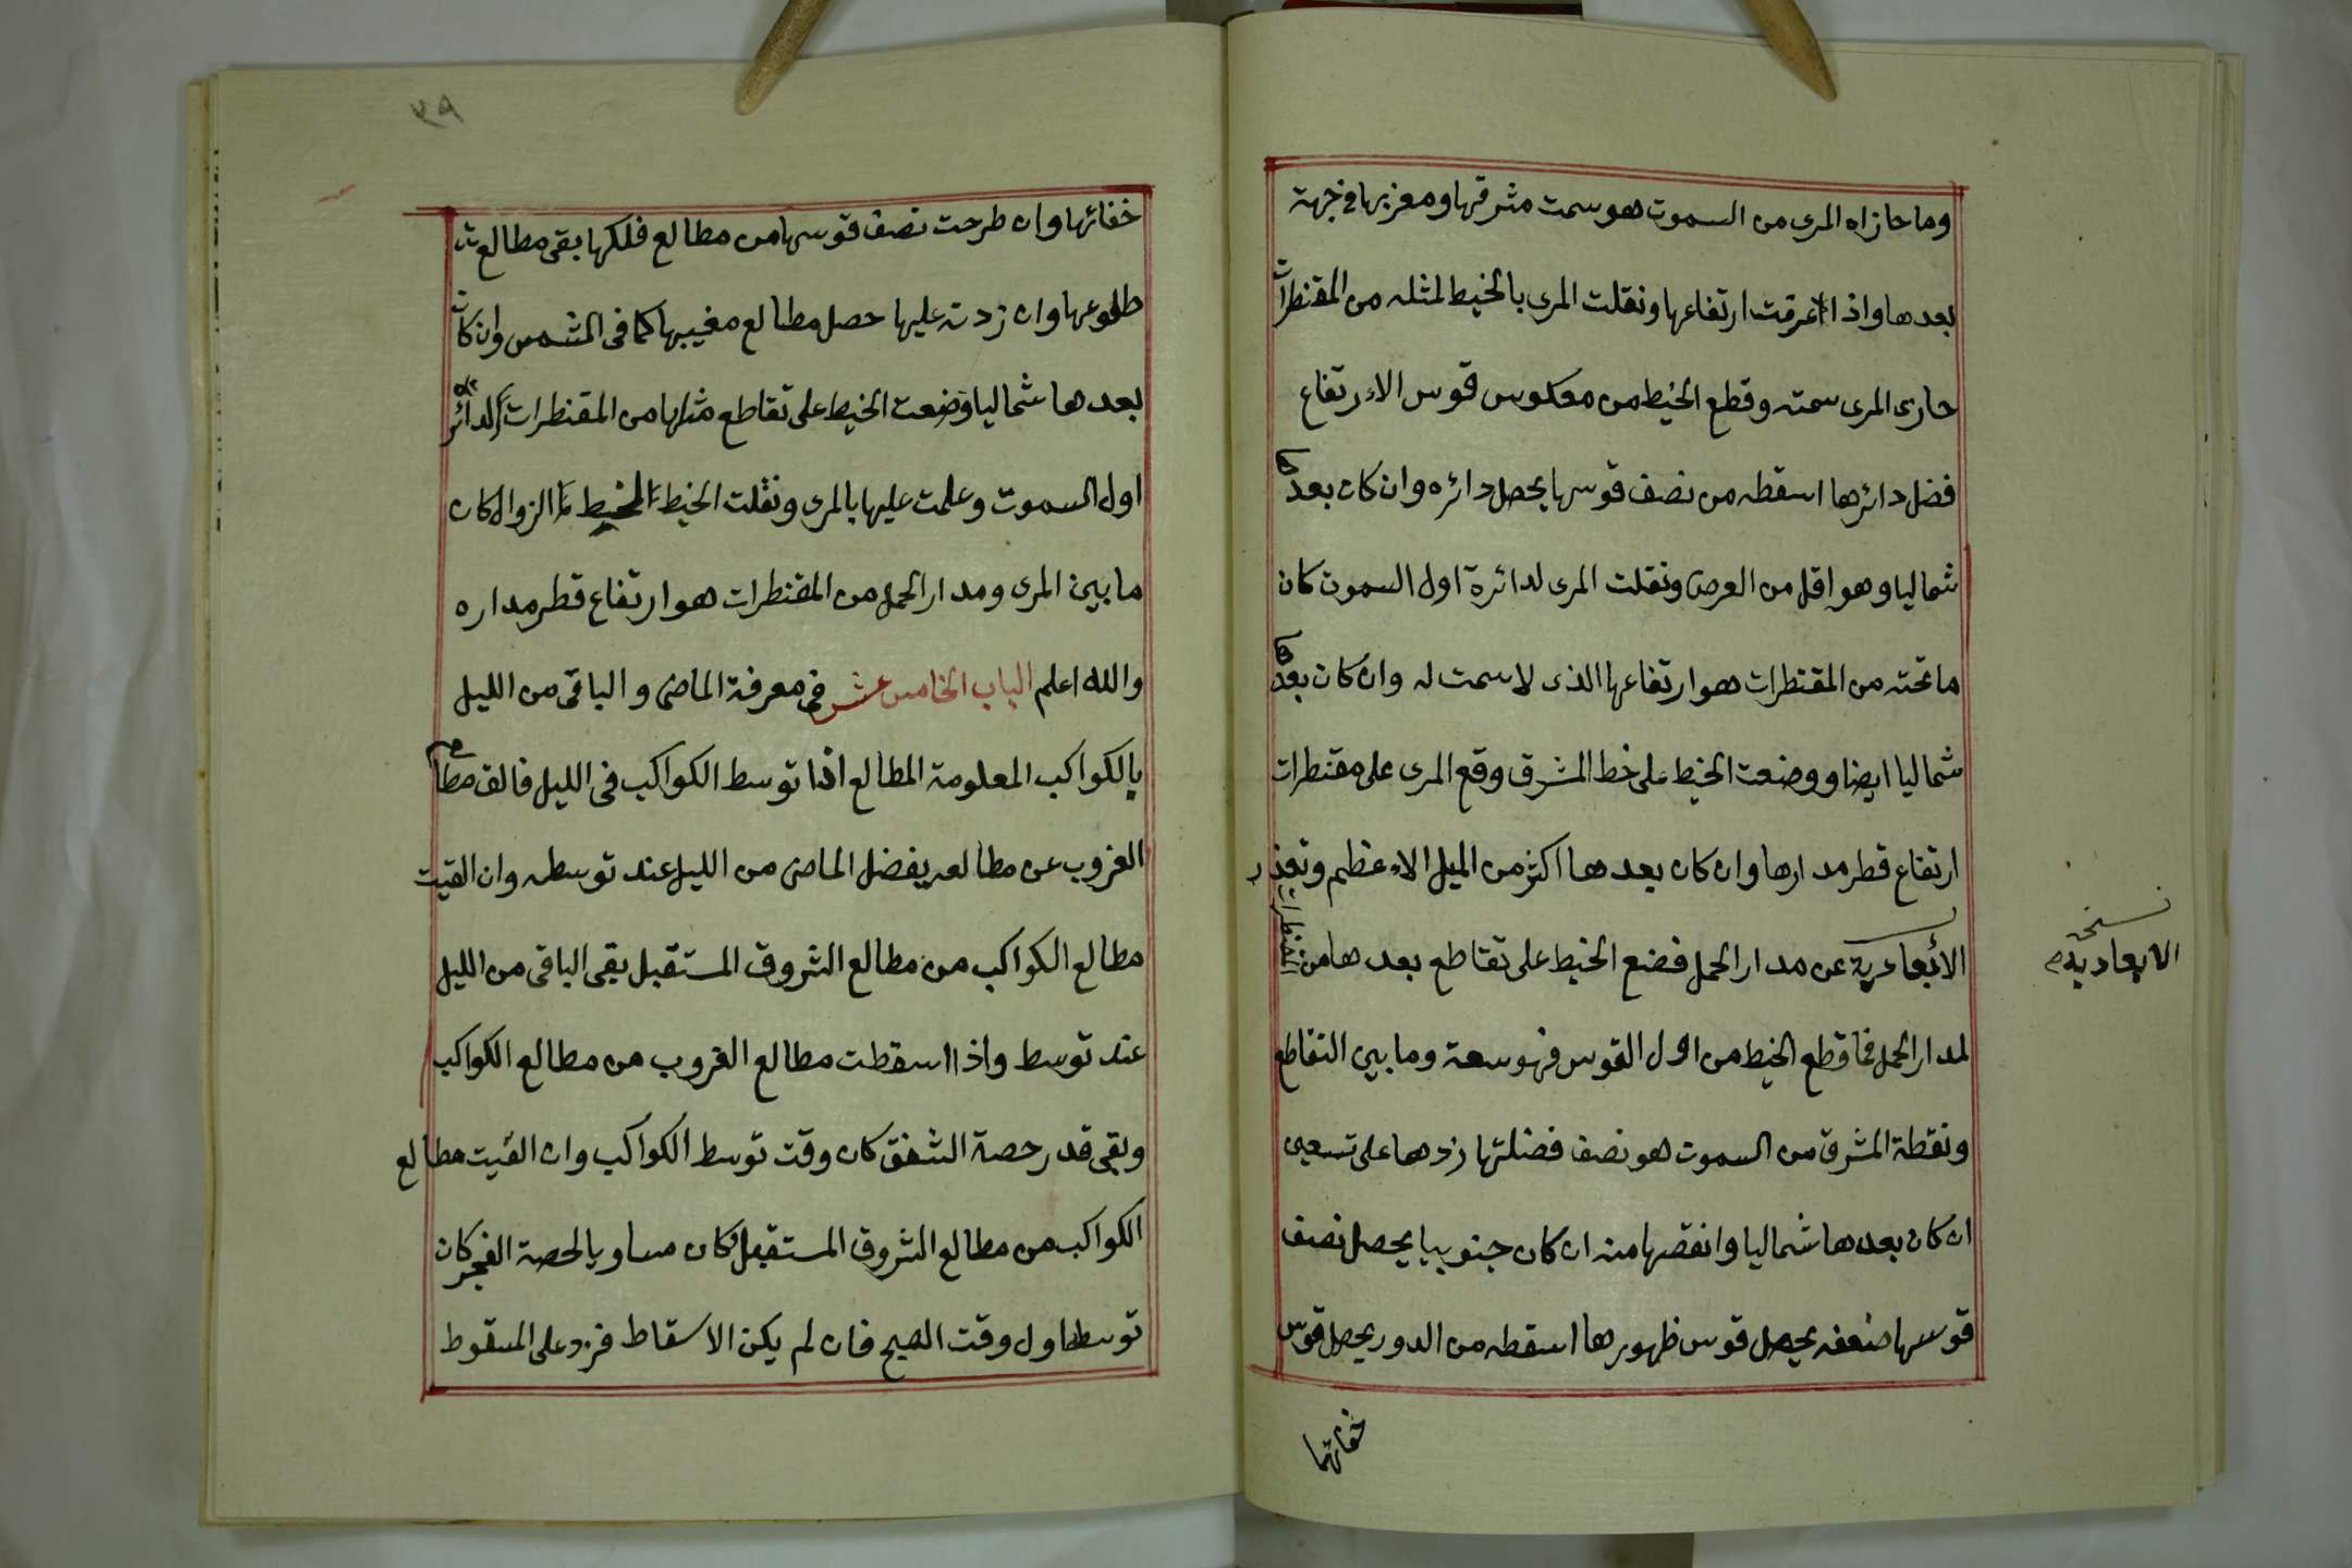 وما حازاه المرى من السموت هو سمت مشرقها ومغربها في جهة
بعدها واذا عرفت ارتفاعها ونقلت المرى بالخيط لمثله من المقنطرات
حازى المرى سمته وقطع الخيط من معكوس قوس الارتفاع
فضل دائرها اسقطه من نصف قوسها يحصل دائره وان كان بعدها
شماليا وهو اقل من العرض ونقلت المرى لدائرة اول السموت كان
ما تحته من المقنطرات هو ارتفاعها الذى لا سمت له وان كان بعدها
شماليا ايضا ووضعت الخيط على خط المشرق وقع المرى على مقنطرات
ارتفاع قطر مدارها وان كان بعدها اكثر من الميل الاعظم وتعذر
الأبعادية عن مدار الحمل فضع الخيط على تقاطع بعدها من المقنطرات
نسخة
الابعادية
لمدار الحمل فما قطع الخيط من اول القوس فهو سعة وما بين التقاطع
ونقطة المشرق من السموت هو نصف فضلتها زدها على تسعين
ان كان بعدها شماليا وانقصها منه ان كان جنوبيا يحصل نصف
قوسها ضعفه يحصل قوس ظهورها اسقطه من الدور يحصل قوس
خفائها
٣٩
خفائها وان طرحت نصف قوسها من مطالع فلكها بقى مطالع
طلوعها وان زدته عليها حصل مطالع مغيبها كما فى الشمس وان كان
بعدها شماليا وضعت الخيط على تقاطع مثلها من المقنطرات لدائرة
اول السموت وعلمت عليها بالمرى ونقلت الخيط الزوال كان
ما بين المرى ومدار الحمل من المقنطرات هو ارتفاع قطر مداره
والله اعلم الباب الخامس عشر فى معرفة الماضى والباقى من الليل
بالكواكب المعلومة المطالع اذا توسط الكواكب فى الليل فالق مطالع
الغروب عن مطالعه يفضل الماضى من الليل عند توسطه وان القيت
مطالع الكواكب من مطالع الشروق المستقبل بقى الباقى من الليل
عند توسط واذا اسقطت مطالع الغروب من مطالع الكواكب
وبقى قدر حصة الشفق كان وقت توسط الكواكب وان القيت مطالع
الكواكب من مطالع الشروق المستقبل وكان مساويا لحصة الفجر كان
توسطها اول وقت الصبح فان لم يكن الاسقاط فزد على المسقوط